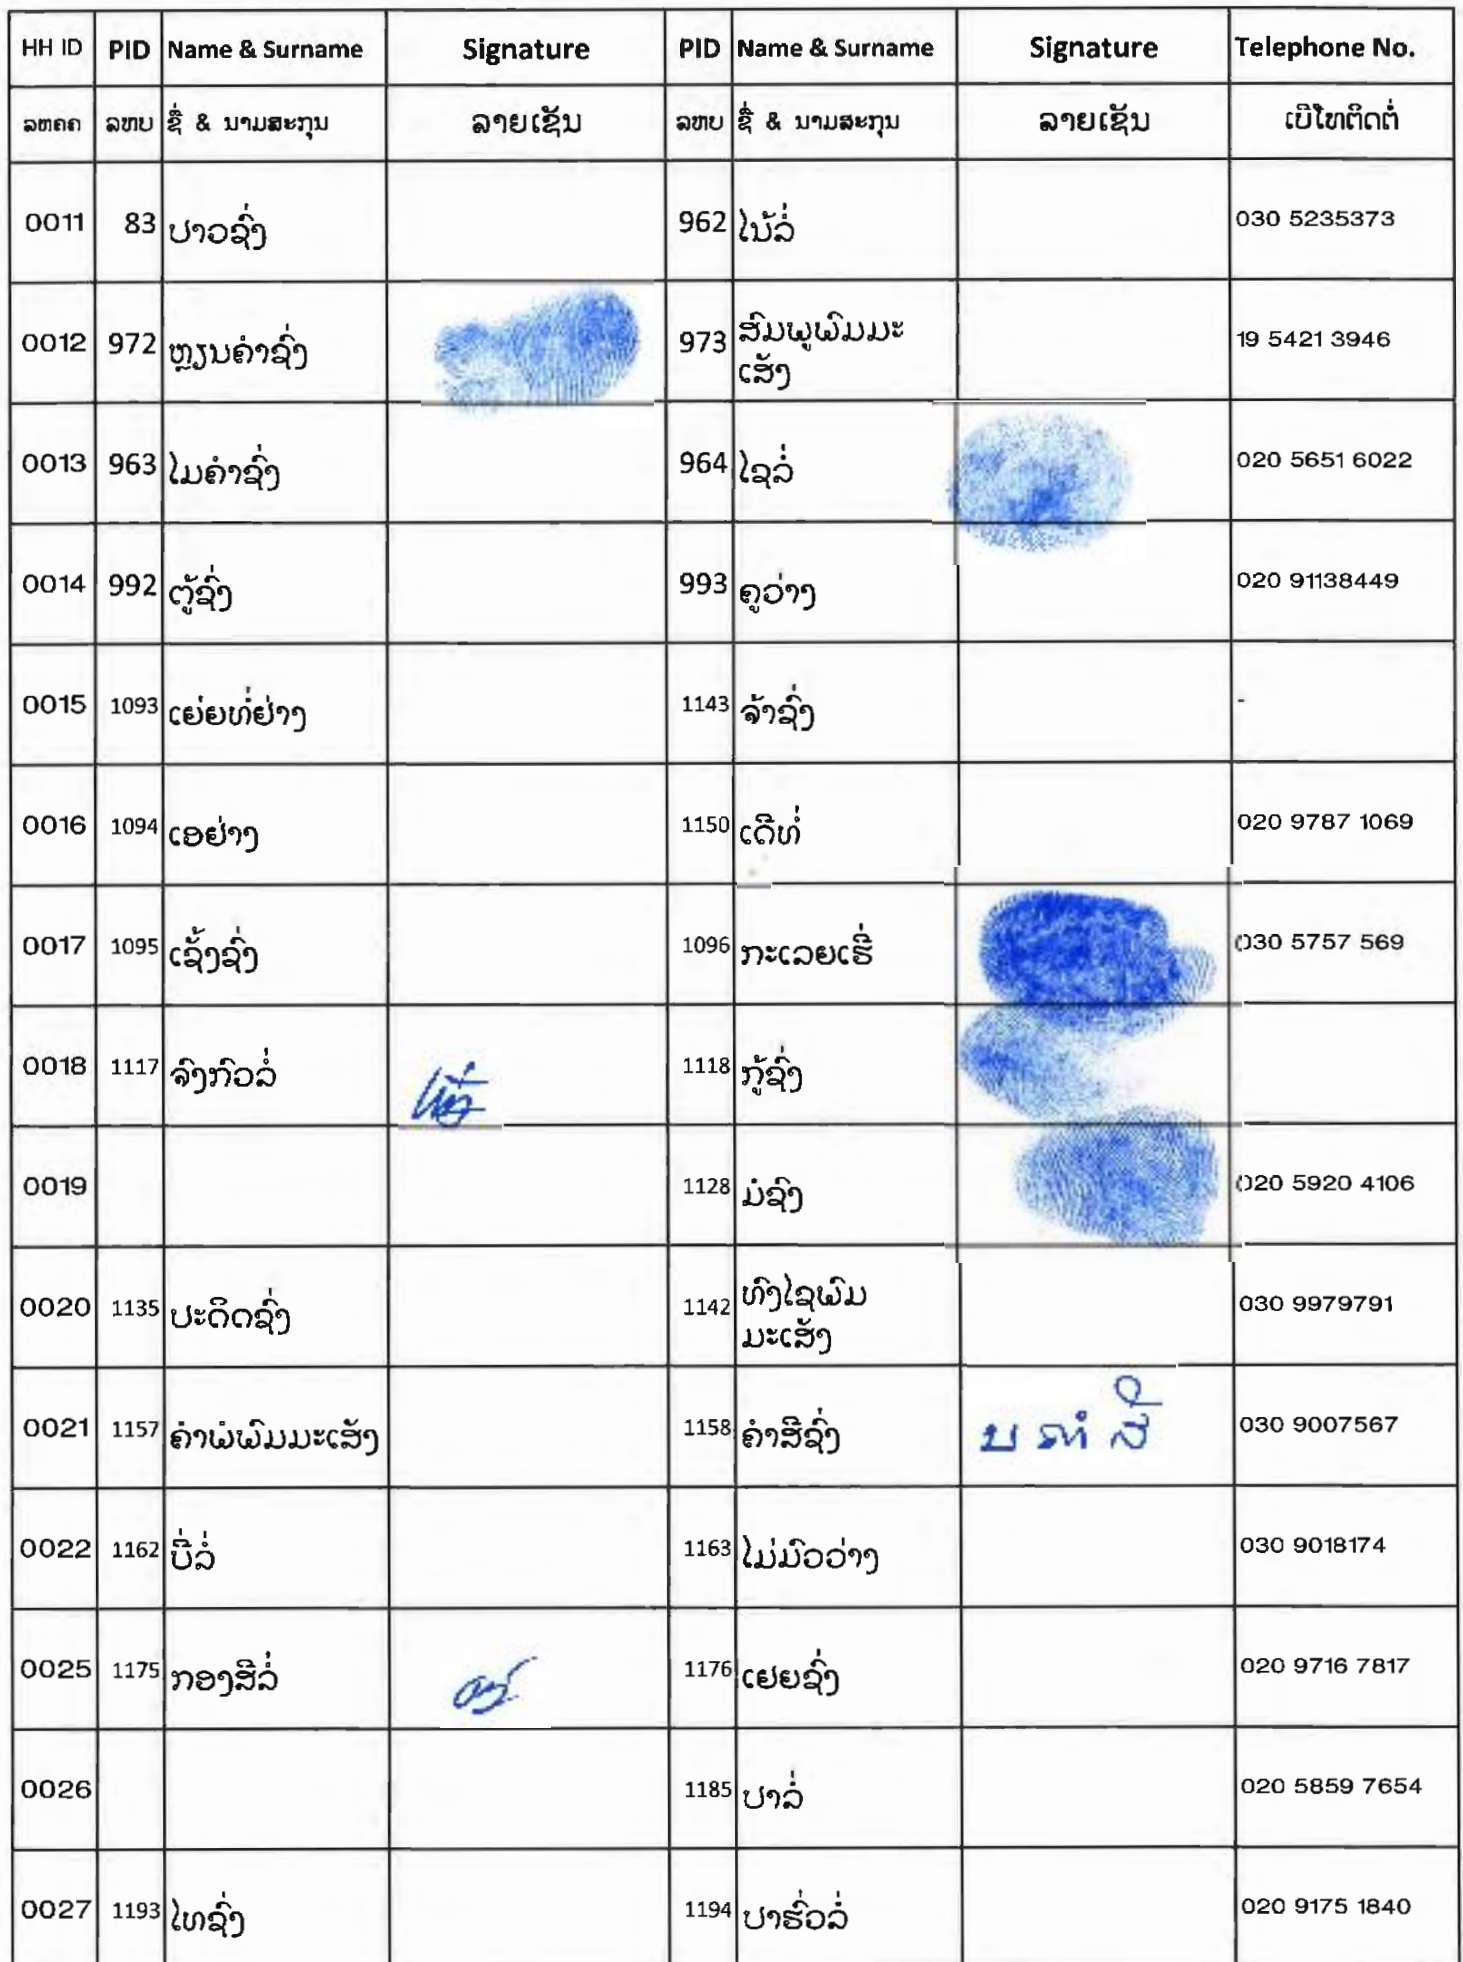 HH ID PID Name & Surname Signature PID Name & Surname Signature Telephone No.
ລຫຄຄ ລຫບ ຊື່ & ນາມສະກຸນ ລາຍເຊັນ ລຫບ ຊື່ & ນາມສະກຸນ ລາຍເຊັນ ເບີໂທຕິດຕໍ່
0011 83 ປາວຊົ່ງ 962 ໄນ້ລໍ່ 030 5235373
0012 972 ຫຼຽນຄຳຊົ່ງ 973 ສົມພູພົມມະ 19 5421 3946
ເສັ້ງ
0013 963 ໄມຄຳຊົ່ງ 964 ໄຊລໍ່ 020 5651 6022
0014 992 ຕູ້ຊົ່ງ 993 ຄູວ່າງ 020 91138449
0015 1093 ເຍ່ຍທໍ່ຢ່າງ 1143 ຈ້າຊົ່ງ -
0016 1094 ເອຢ່າງ 1150 ເດີທໍ່ 020 9787 1069
0017 1095 ເຊັ້ງຊົ່ງ 1096 ກະເລຍເຮີ່ 030 5757 569
0018 1117 ຈົງກົວລໍ່ 1118 ກູ້ຊົ່ງ
0019 1128 ມໍຊົງ 020 5920 4106
0020 1135 ປະດິດຊົ່ງ 1142 ທົງໄຊພົມ 030 9979791
ມະເສັ້ງ
0021 1157 ຄຳພໍພົມມະເສັ້ງ 1158 ຄຳສີຊົ່ງ ບ ຄຳ ສີ 030 9007567
0022 1162 ບີ່ລໍ່ 1163 ໄມ່ມົວວ່າງ 030 9018174
0025 1175 ກອງສີລໍ່ 1176 ເຢຍຊົ່ງ 020 9716 7817
0026 1185 ປາລໍ່ 020 5859 7654
0027 1193 ໄທຊົ່ງ 1194 ປາຮົ່ວລໍ່ 020 9175 1840